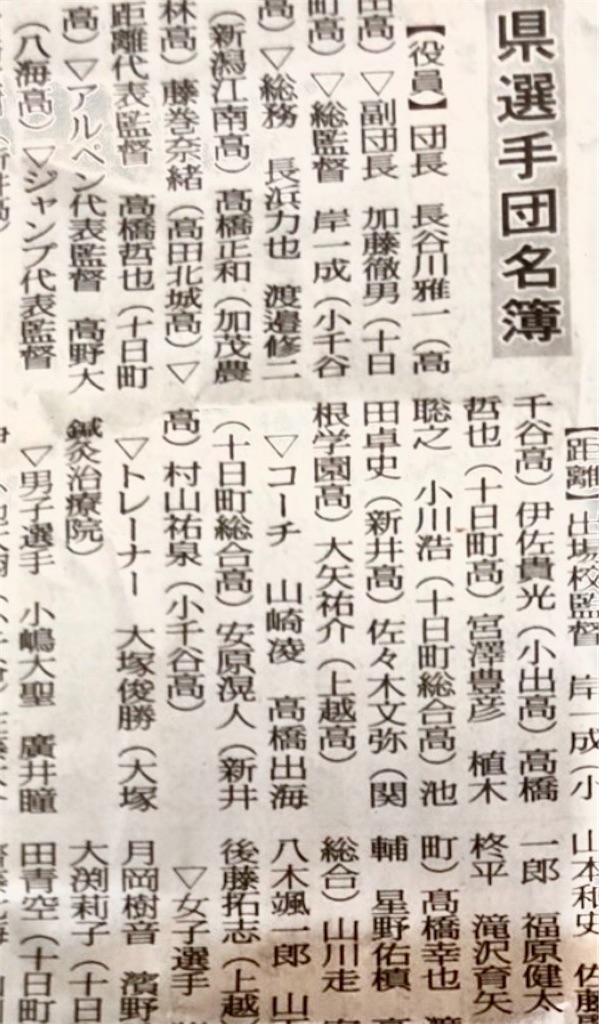 県選手団名簿
【役員】団長 長谷川雅一（高
田高）▽副団長 加藤徹男（十日
町高）▽総監督 岸一成（小千谷
高）▽総務 長浜力也 渡邉修二
（新潟江南高）高橋正和（加茂農
林高）藤巻奈緒（高田北城高）▽
距離代表監督 高橋哲也（十日町
高）▽アルペン代表監督 高野大
（八海高）▽ジャンプ代表監督
（新井高）
【距離】出場校監督 岸一成（小
千谷高）伊佐貴光（小出高）高橋
哲也（十日町高）宮澤豊彦 植木
聡之 小川浩（十日町総合高）池
田卓史（新井高）佐々木文弥（関
根学園高）大矢祐介（上越高）
▽コーチ 山崎凌 高橋出海
（十日町総合高）安原滉人（新井
高）村山祐泉（小千谷高）
▽トレーナー 大塚俊勝（大塚
鍼灸治療院）
▽男子選手 小嶋大聖 廣井瞳
山本和史 佐藤
一郎 福原健太
柊平 滝沢育矢
町）高橋幸也
輔 星野佑槙
総合）山川走
八木颯一郎 山
後藤拓志（上越
▽女子選手
月岡樹音 濱野
大渕莉子（十日
田青空（十日町